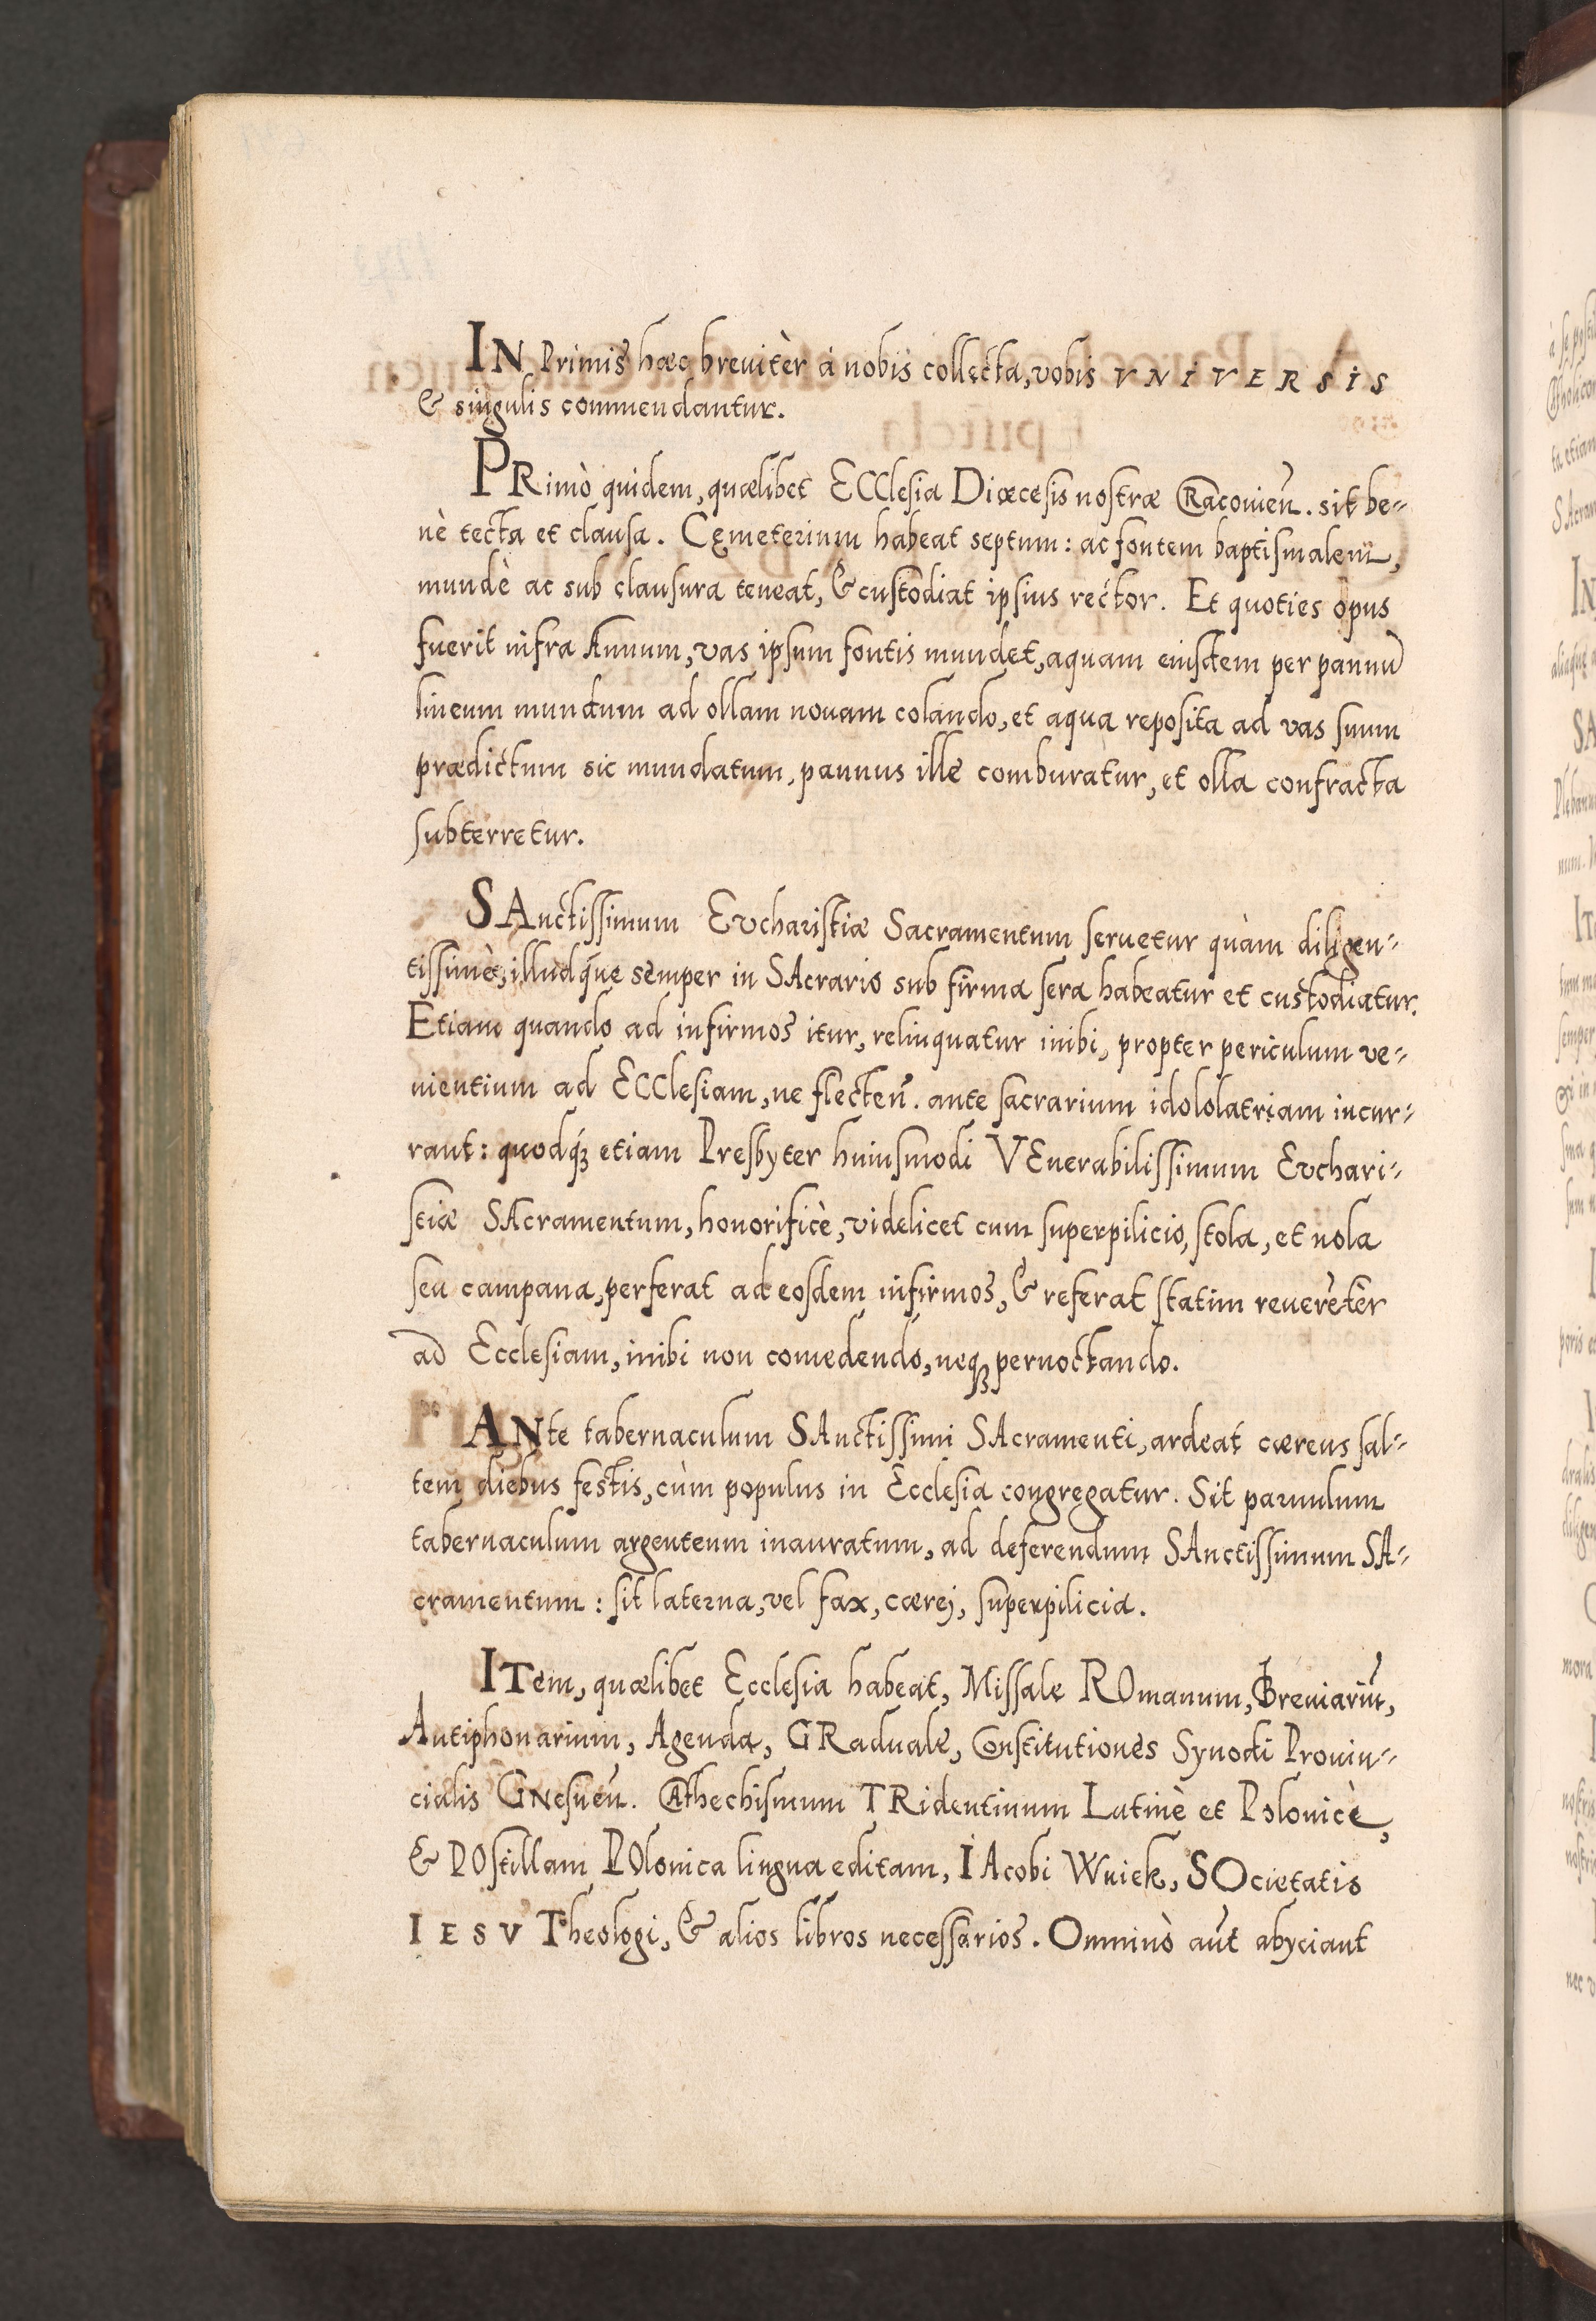 IN Primis hæc breuitèr à nobis collecta, vobis VNIVERSIS
& singulis commendantur.
PRimò quidem, quælibet ECClesia Diœcesis nostræ CRacouień. sit be-
nè tecta et clausa. Cęmeterium habeat septum: ac fontem baptismalem,
mundè ac sub clausura teneat, & custodiat ipsius rector. Et quoties opus
fuerit infra Annum, vas ipsum fontis mundet, aquam eiusdem per pannũ
lineum mundum ad ollam nouam colando, et aqua reposita ad vas suum
prædictum sic mundatum, pannus ille comburatur, et olla confracta
subterretur.
SAnctissimum Evcharistiæ Sacramentum seruetur quàm diligen-
tissimè, illudq́ue semper in SAcrario sub firma sera habeatur et custodiatur.
Etiam quando ad infirmos itur, relinquatur inibi, propter periculum ve-
nientium ad ECClesiam, ne flecteń. ante sacrarium idololatriam incur-
rant: quodq́ꝫ etiam Presbyter huiusmodi VEnerabilissimum Evchari-
stiæ SAcramentum, honorificè, videlicet cum superpilicio, stola, et nola
seu campana, perferat ad eosdem infirmos, & referat statim reuerẽter
ad Ecclesiam, inibi non comedendo, neqꝫ pernoctando.
ANte tabernaculum SAnctissimi SAcramenti, ardeat cæreus sal-
tem diebus festis, cùm populus in Ecclesia congregatur. Sit paruulum
tabernaculum argenteum inauratum, ad deferendum SAnctissimum SA-
cramentum: sit laterna, vel fax, cærej, superpilicia.
ITem, quælibet Ecclesia habeat, Missale ROmanum, Breuiariũ,
Antiphonarium, Agenda, GRaduale, Constitutiones Synodi Prouin-
cialis GNesneń. CAthechismum TRidentinum Latinè et Polonicè,
& POstillam POlonica lingua editam, IAcobi Wuiek, SOcietatis
IESV Theologi, & alios libros necessarios. Omninò aũt abyciant